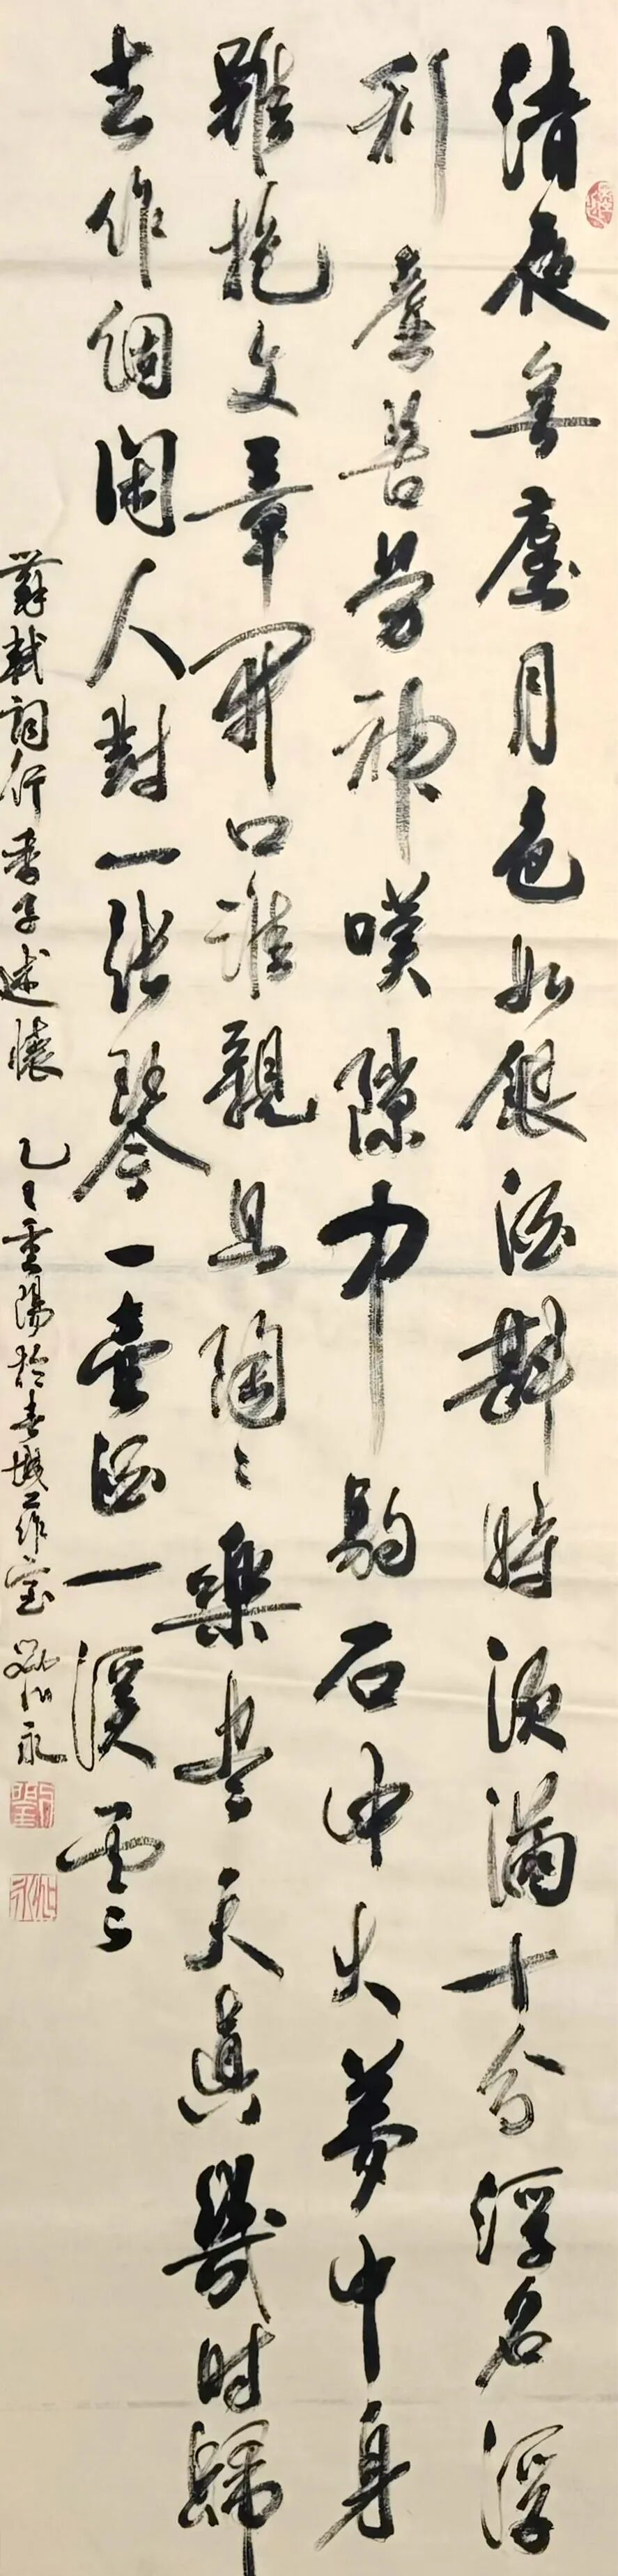 清夜無塵月色如銀酒斟時須滿十分浮名浮
利虛苦勞神嘆隙中駒石中火夢中身
雖抱文章開口誰親且陶〻樂盡天真幾時歸
去作個閑人對一張琴一壺酒一溪雲
蘇軾詞行香子述懷 乙巳重陽於春城